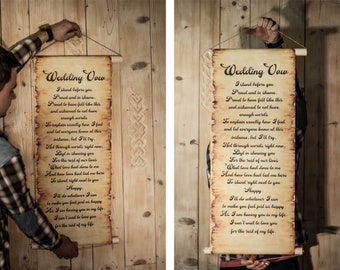 Wedding Vow
I stand before you
Proud and in shame.
Proud to have felt like this
and ashamed to not have
enough words.
To explain exactly how I feel
and let everyone home at this
instance, but I'll try.
Not through words right now,
but in showing you
For the rest of our lives.
What love had done to me
And how love had led me here
To stand right next to you
Happy.
I'll do whatever I can
to make you feel just as happy
As, I am having you in my life.
I can't wait to love you
for the rest of my life.
Wedding Vow
I stand before you
Proud and in shame.
Proud to have felt like this
and ashamed to not have
enough words.
To explain exactly how I feel
and let everyone home at this
instance, but I'll try.
Not through words right now,
but in showing you
For the rest of our lives.
What love had done to me
And how love had led me here
To stand right next to you
Happy.
I'll do whatever I can
to make you feel just as happy
As, I am having you in my life.
I can't wait to love you
for the rest of my life.